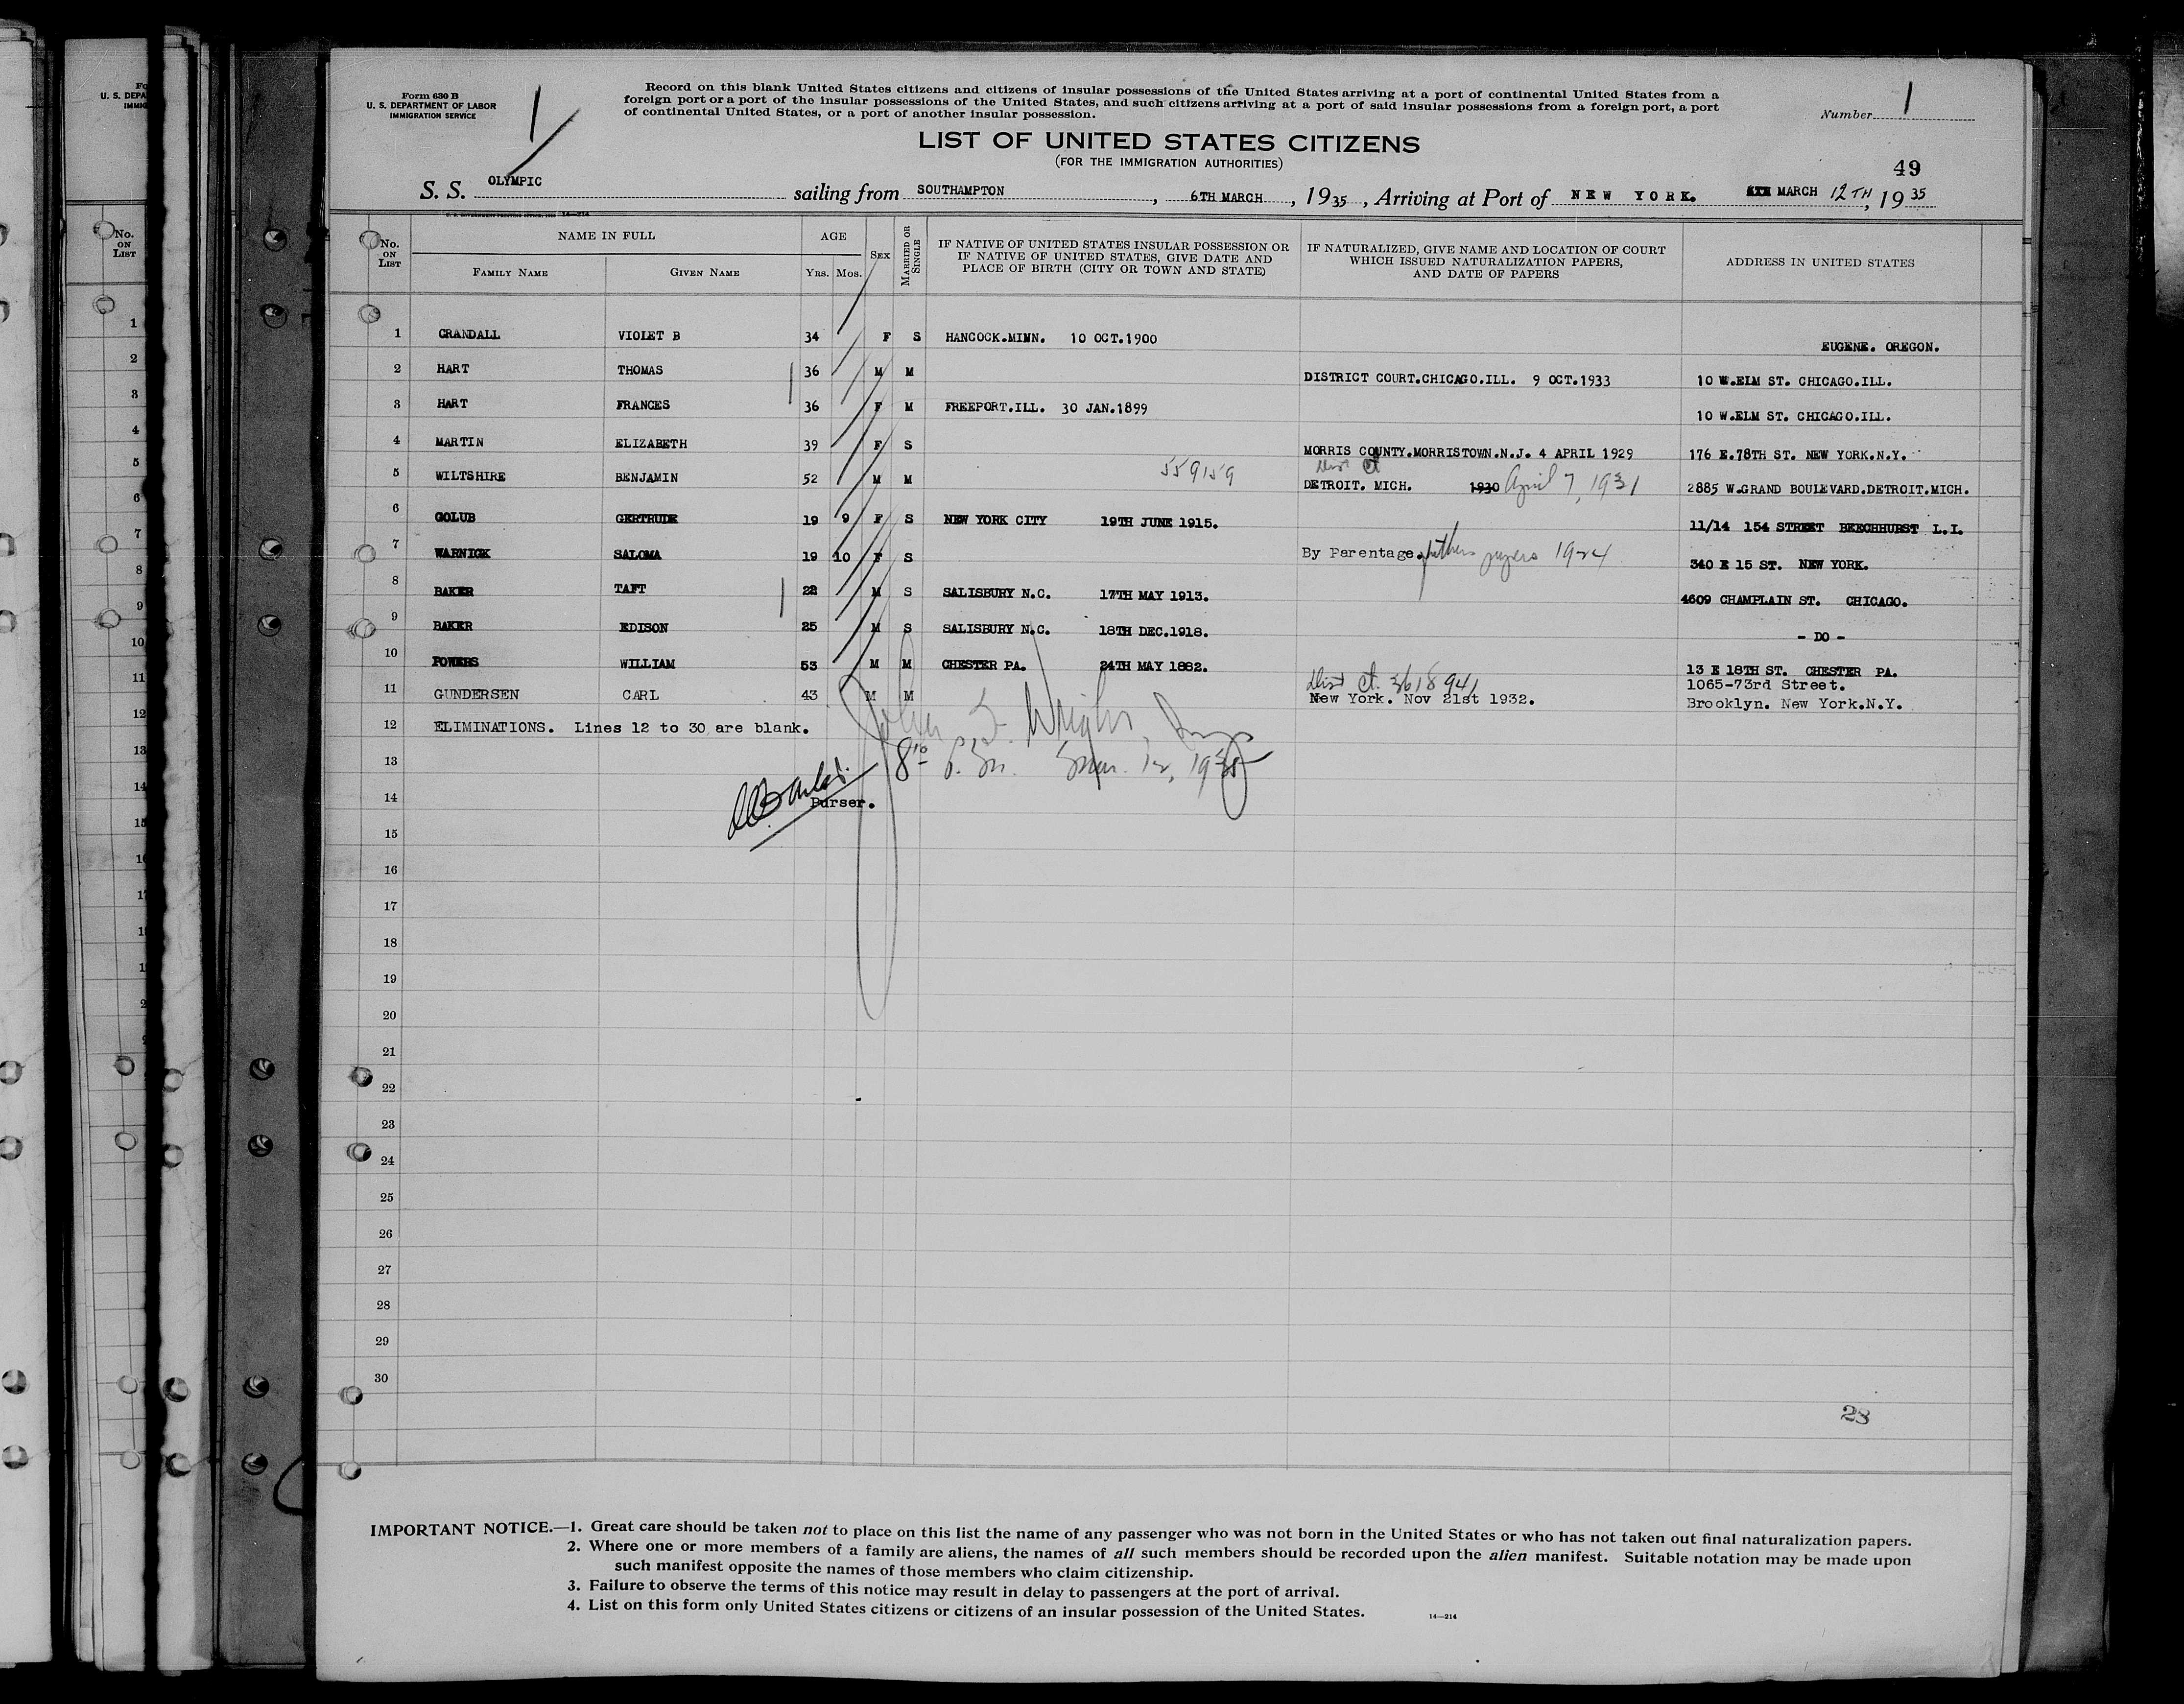 Form 630 B
U. S. DEPARTMENT OF LABOR
IMMIGRATION SERVICE
1
Record on this blank United States citizens and citizens of insular possessions of the United States arriving at a port of continental United States from a
foreign port or a port of the insular possessions of the United States, and such citizens arriving at a port of said insular possessions from a foreign port, a port
of continental United States, or a port of another insular possession.
Number 1
LIST OF UNITED STATES CITIZENS
(FOR THE IMMIGRATION AUTHORITIES)
49
S. S. OLYMPIC sailing from SOUTHAMPTON, 6TH MARCH, 1935, Arriving at Port of NEW YORK. MARCH 12TH, 1935
No. ON LIST
NAME IN FULL
FAMILY NAME
GIVEN NAME
AGE
Yrs. Mos.
SEX
MARRIED OR SINGLE
IF NATIVE OF UNITED STATES INSULAR POSSESSION OR
IF NATIVE OF UNITED STATES, GIVE DATE AND
PLACE OF BIRTH (CITY OR TOWN AND STATE)
IF NATURALIZED, GIVE NAME AND LOCATION OF COURT
WHICH ISSUED NATURALIZATION PAPERS,
AND DATE OF PAPERS
ADDRESS IN UNITED STATES
1 CRANDALL VIOLET B 34 F S HANCOCK.MINN. 10 OCT.1900 EUGENE. OREGON.
2 HART THOMAS 36 M M DISTRICT COURT.CHICAGO.ILL. 9 OCT.1933 10 W.ELM ST. CHICAGO.ILL.
3 HART FRANCES 36 F M FREEPORT.ILL. 30 JAN.1899 10 W.ELM ST. CHICAGO.ILL.
4 MARTIN ELIZABETH 39 F S MORRIS COUNTY.MORRISTOWN.N.J. 4 APRIL 1929 176 E.78TH ST. NEW YORK.N.Y.
559159 Dist Ct
5 WILTSHIRE BENJAMIN 52 M M DETROIT. MICH. 1930 April 7, 1931 2885 W.GRAND BOULEVARD.DETROIT.MICH.
6 GOLUB GERTRUDE 19 9 F S NEW YORK CITY 19TH JUNE 1915. 11/14 154 STREET BEECHHURST L.I.
7 WARNICK SALOMA 19 10 F S By Parentage. fathers papers 1924 340 E 15 ST. NEW YORK.
8 BAKER TAFT 22 M S SALISBURY N.C. 17TH MAY 1913. 4609 CHAMPLAIN ST. CHICAGO.
9 BAKER EDISON 25 M S SALISBURY N.C. 18TH DEC.1918. - DO -
10 POWERS WILLIAM 53 M M CHESTER PA. 24TH MAY 1882. 13 E 18TH ST. CHESTER PA.
Dist Ct. 3618941 1065-73rd Street.
11 GUNDERSEN CARL 43 M M New York. Nov 21st 1932. Brooklyn. New York.N.Y.
12 ELIMINATIONS. Lines 12 to 30 are blank.
13 8 P.M. Mar. 12, 1935
14 Purser.
15
16
17
18
19
20
21
22
23
24
25
26
27
28
29
30
28
IMPORTANT NOTICE.—1. Great care should be taken not to place on this list the name of any passenger who was not born in the United States or who has not taken out final naturalization papers.
2. Where one or more members of a family are aliens, the names of all such members should be recorded upon the alien manifest. Suitable notation may be made upon
such manifest opposite the names of those members who claim citizenship.
3. Failure to observe the terms of this notice may result in delay to passengers at the port of arrival.
4. List on this form only United States citizens or citizens of an insular possession of the United States.
14—214